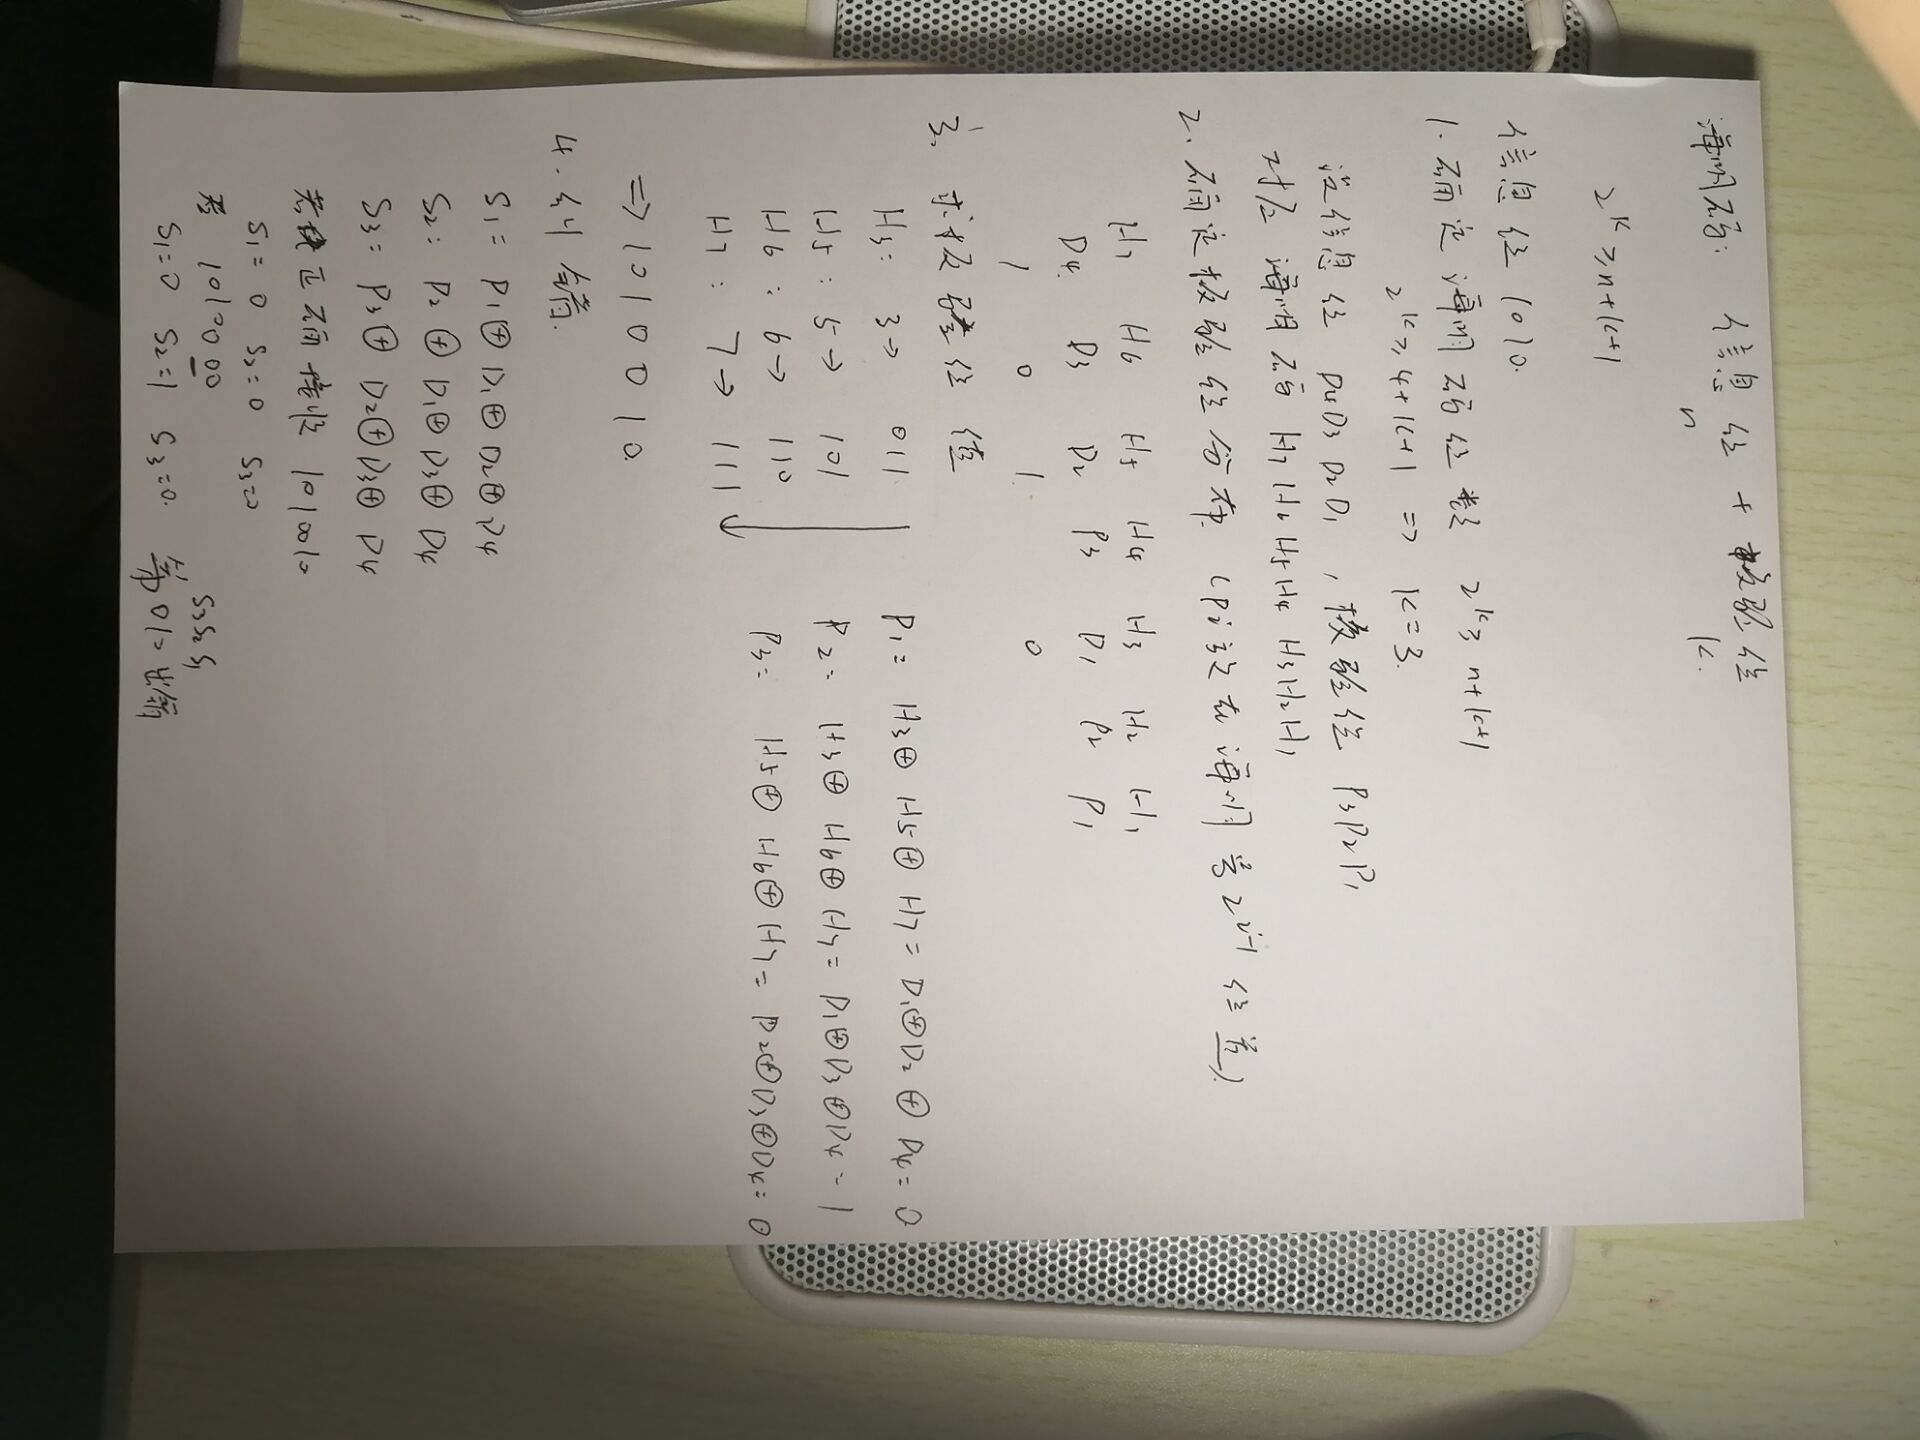 海明码: 信息位 + 校验位
n k.
2^k ≥ n+k+1
信息位 1010.
1. 确定海明码位数 2^k ≥ n+k+1
2^k ≥ 4+k+1 => k=3.
设信息位 D4D3D2D1, 校验位 P3P2P1
对应海明码 H7H6H5H4H3H2H1
2. 确定校验位分布 (Pi放在海明第2^(i-1)位置).
H7 H6 H5 H4 H3 H2 H1
D4 D3 D2 P3 D1 P2 P1
1 0 1 0
3. 求校验位值
H3: 3→ 011 P1= H3⊕H5⊕H7=D1⊕D2⊕D4=0
H5: 5→ 101 P2= H3⊕H6⊕H7=D1⊕D3⊕D4=1
H6: 6→ 110 P3= H5⊕H6⊕H7=D2⊕D3⊕D4=0
H7: 7→ 111
=> 1010010.
4. 纠错.
S1= P1⊕D1⊕D2⊕D4
S2= P2⊕D1⊕D3⊕D4
S3= P3⊕D2⊕D3⊕D4
若正确接收 1010010
S1=0 S2=0 S3=0
若 1010000 S3S2S1
S1=0 S2=1 S3=0. 第010位出错